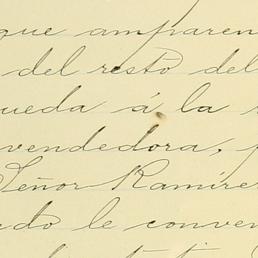 que amparen
del resto del
queda á la
vendedora,
Señor Ramíre
do le conven